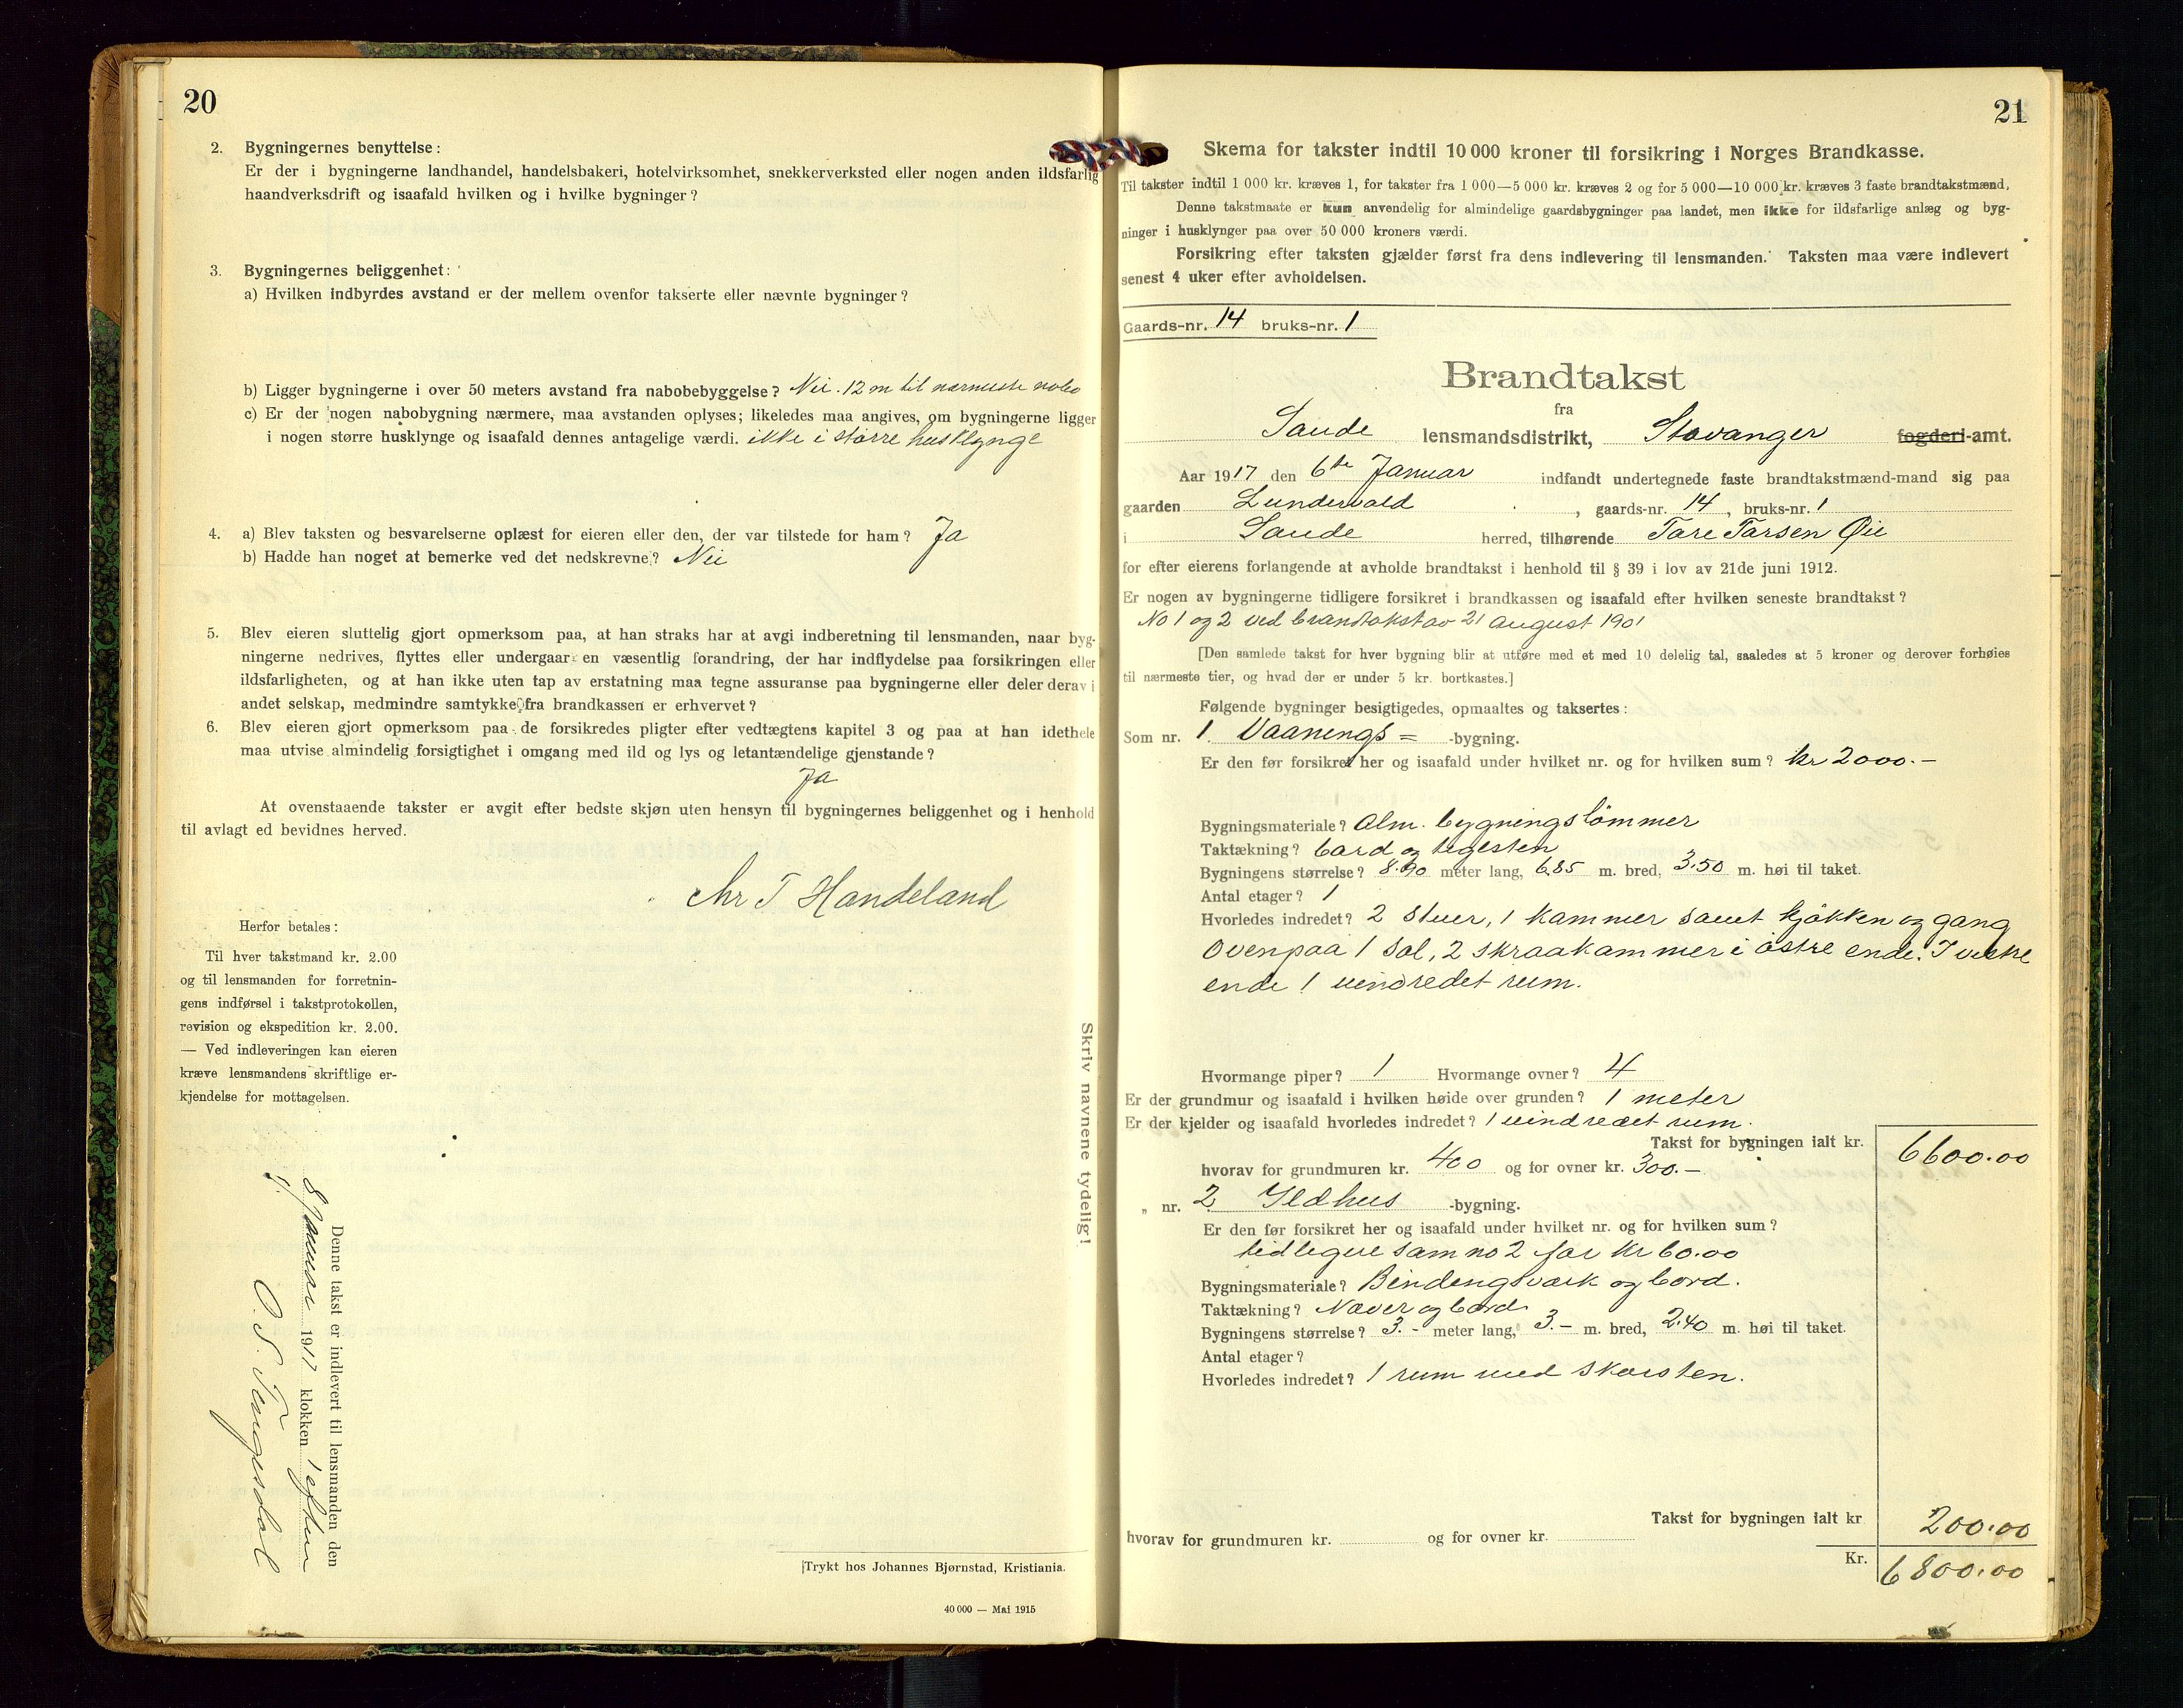 20
2. Bygningernes benyttelse:
Er der i bygningerne landhandel, handelsbakeri, hotelvirksomhet, snekkerverksted eller nogen anden ildsfarlig
haandverksdrift og isaafald hvilken og i hvilke bygninger?
3. Bygningernes beliggenhet:
a) Hvilken indbyrdes avstand er der mellem ovenfor takserte eller nævnte bygninger?
b) Ligger bygningerne i over 50 meters avstand fra nabobebyggelse? Nei. 12 m til nærmeste nabo
c) Er der nogen nabobygning nærmere, maa avstanden oplyses; likeledes maa angives, om bygningerne ligger
i nogen større husklynge og isaafald dennes antagelige værdi. ikke i större husklynge
4. a) Blev taksten og besvarelserne oplæst for eieren eller den, der var tilstede for ham? Ja
b) Hadde han noget at bemerke ved det nedskrevne? Nei
5. Blev eieren sluttelig gjort opmerksom paa, at han straks har at avgi indberetning til lensmanden, naar byg-
ningerne nedrives, flyttes eller undergaar en væsentlig forandring, der har indflydelse paa forsikringen eller
ildsfarligheten, og at han ikke uten tap av erstatning maa tegne assuranse paa bygningerne eller deler derav i
andet selskap, medmindre samtykke fra brandkassen er erhvervet?
6. Blev eieren gjort opmerksom paa de forsikredes pligter efter vedtægtens kapitel 3 og paa at han idethele
maa utvise almindelig forsigtighet i omgang med ild og lys og letantændelige gjenstande?
Ja
At ovenstaaende takster er avgit efter bedste skjøn uten hensyn til bygningernes beliggenhet og i henhold
til avlagt ed bevidnes herved.
Chr T Handeland
Herfor betales:
Til hver takstmand kr. 2.00
og til lensmanden for forretnin-
gens indførsel i takstprotokollen,
revision og ekspedition kr. 2.00.
— Ved indleveringen kan eieren
kræve lensmandens skriftlige er-
kjendelse for mottagelsen.
Skriv navnene tydelig!
Denne takst er indlevert til lensmanden den
8 Januar 1917 klokken 1 efterm
O. S. Tangesdal
Trykt hos Johannes Bjørnstad, Kristiania.
40 000 — Mai 1915
21
Skema for takster indtil 10 000 kroner til forsikring i Norges Brandkasse.
Til takster indtil 1 000 kr. kræves 1, for takster fra 1 000—5 000 kr. kræves 2 og for 5 000—10 000 kr. kræves 3 faste brandtakstmænd,
Denne takstmaate er kun anvendelig for almindelige gaardsbygninger paa landet, men ikke for ildsfarlige anlæg og byg-
ninger i husklynger paa over 50 000 kroners værdi.
Forsikring efter taksten gjælder først fra dens indlevering til lensmanden. Taksten maa være indlevert
senest 4 uker efter avholdelsen.
Gaards-nr. 14 bruks-nr. 1
Brandtakst
fra
Saude lensmandsdistrikt, Stavanger fogderi-amt.
Aar 1917 den 6te Januar indfandt undertegnede faste brandtakstmænd-mand sig paa
gaarden Lundevold , gaards-nr. 14, bruks-nr. 1
i Saude herred, tilhørende Tore Torsen Øie
for efter eierens forlangende at avholde brandtakst i henhold til § 39 i lov av 21de juni 1912.
Er nogen av bygningerne tidligere forsikret i brandkassen og isaafald efter hvilken seneste brandtakst?
No 1 og 2 ved brandtakst av 21 august 1901
[Den samlede takst for hver bygning blir at utføre med et med 10 delelig tal, saaledes at 5 kroner og derover forhøies
til nærmeste tier, og hvad der er under 5 kr. bortkastes.]
Følgende bygninger besigtigedes, opmaaltes og taksertes:
Som nr. 1 Vaanings= -bygning.
Er den før forsikret her og isaafald under hvilket nr. og for hvilken sum? kr 2000.-
Bygningsmateriale? Alm. bygningstömmer
Taktækning? bord og teglsten
Bygningens størrelse? 8.90 meter lang, 6.85 m. bred, 3.50 m. høi til taket.
Antal etager? 1
Hvorledes indredet? 2 stuer, 1 kammer samt kjökken og gang
Ovenpaa 1 sal, 2 skraakammer i östre ende. I vestre
ende 1 uindredet rum.
Hvormange piper? 1 Hvormange ovner? 4
Er der grundmur og isaafald i hvilken høide over grunden? 1 meter
Er der kjelder og isaafald hvorledes indredet? 1 uindredet rum.
Takst for bygningen ialt kr. 6600.00
hvorav for grundmuren kr. 400 og for ovner kr. 300.-
„ nr. 2 Ildhus -bygning.
Er den før forsikret her og isaafald under hvilket nr. og for hvilken sum?
tidligere som no 2 for kr 60.00
Bygningsmateriale? Bindingsværk og bord.
Taktækning? Næver og bord
Bygningens størrelse? 3.- meter lang, 3.- m. bred, 2.40 m. høi til taket.
Antal etager?
Hvorledes indredet? 1 rum med skorsten.
Takst for bygningen ialt kr 200.00
hvorav for grundmuren kr. og for ovner kr.
Kr. 6800.00